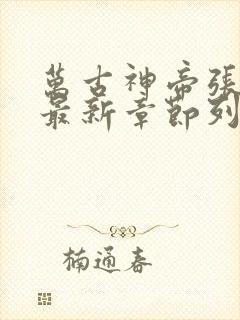 萬古神帝張
最新章節列
楠通春